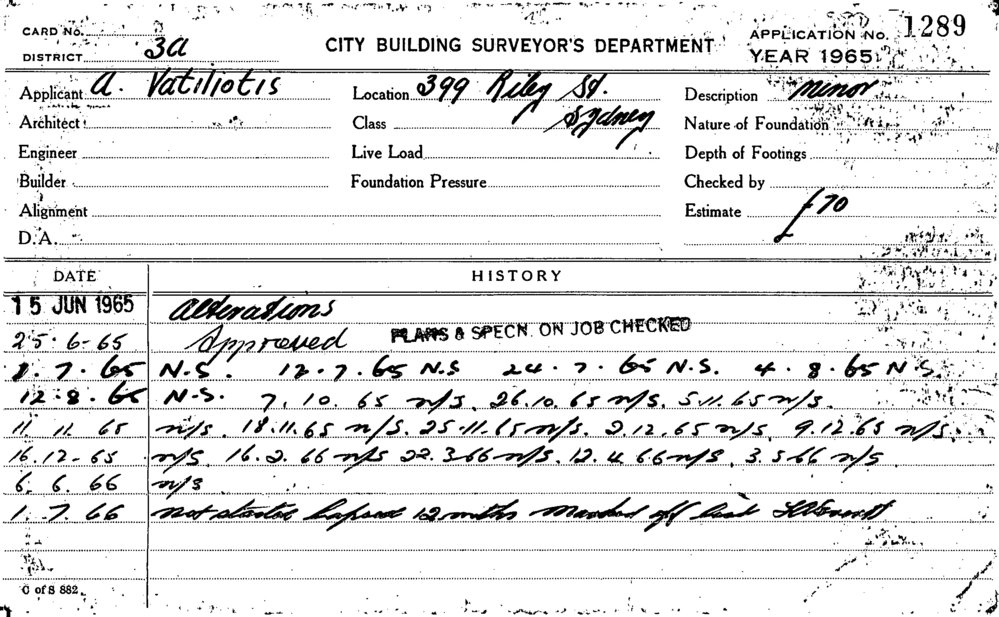 CARD No.
APPLICATION No. 1289
DISTRICT 3a
CITY BUILDING SURVEYOR'S DEPARTMENT
YEAR 1965
Applicant A. Vatiliotis
Location 399 Riley St.
Sydney
Description minor
Architect
Class
Nature of Foundation
Engineer
Live Load
Depth of Footings
Builder
Foundation Pressure
Checked by
Alignment
Estimate £70
D.A.
DATE HISTORY
15 JUN 1965 Alterations
25.6.65 Approved PLANS & SPECN. ON JOB CHECKED
1.7.65 N.S. 12.7.65 N.S 24.7.65 N.S. 4.8.65 N.S.
12.8.65 N.S. 7.10.65 n/s. 26.10.65 n/s. 5.11.65 n/s.
11.11.65 n/s. 18.11.65 n/s. 25.11.65 n/s. 2.12.65 n/s. 9.12.65 n/s.
16.12.65 n/s. 16.2.66 n/s 22.3.66 n/s. 12.4.66 n/s. 3.5.66 n/s
6.6.66 n/s
1.7.66 not started lapsed 12 mths Marked off
C of S 882.